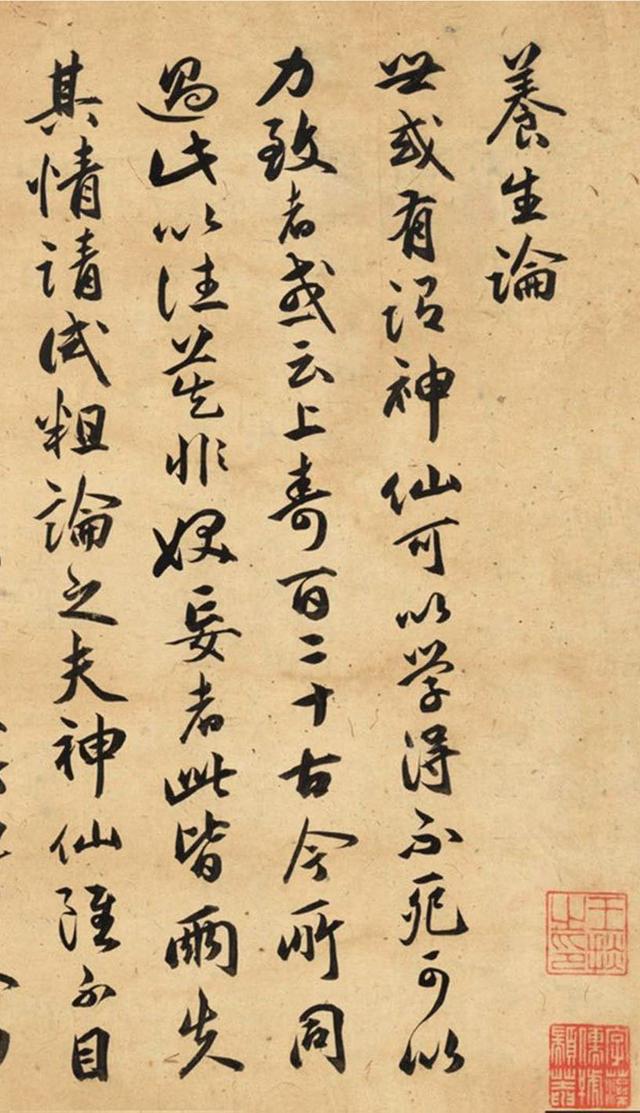 養生論
世或有謂神仙可以学得不死可以
力致者或云上壽百二十古今所同
過此以往莫非妖妄者此皆兩失
其情請試粗論之夫神仙雖不目